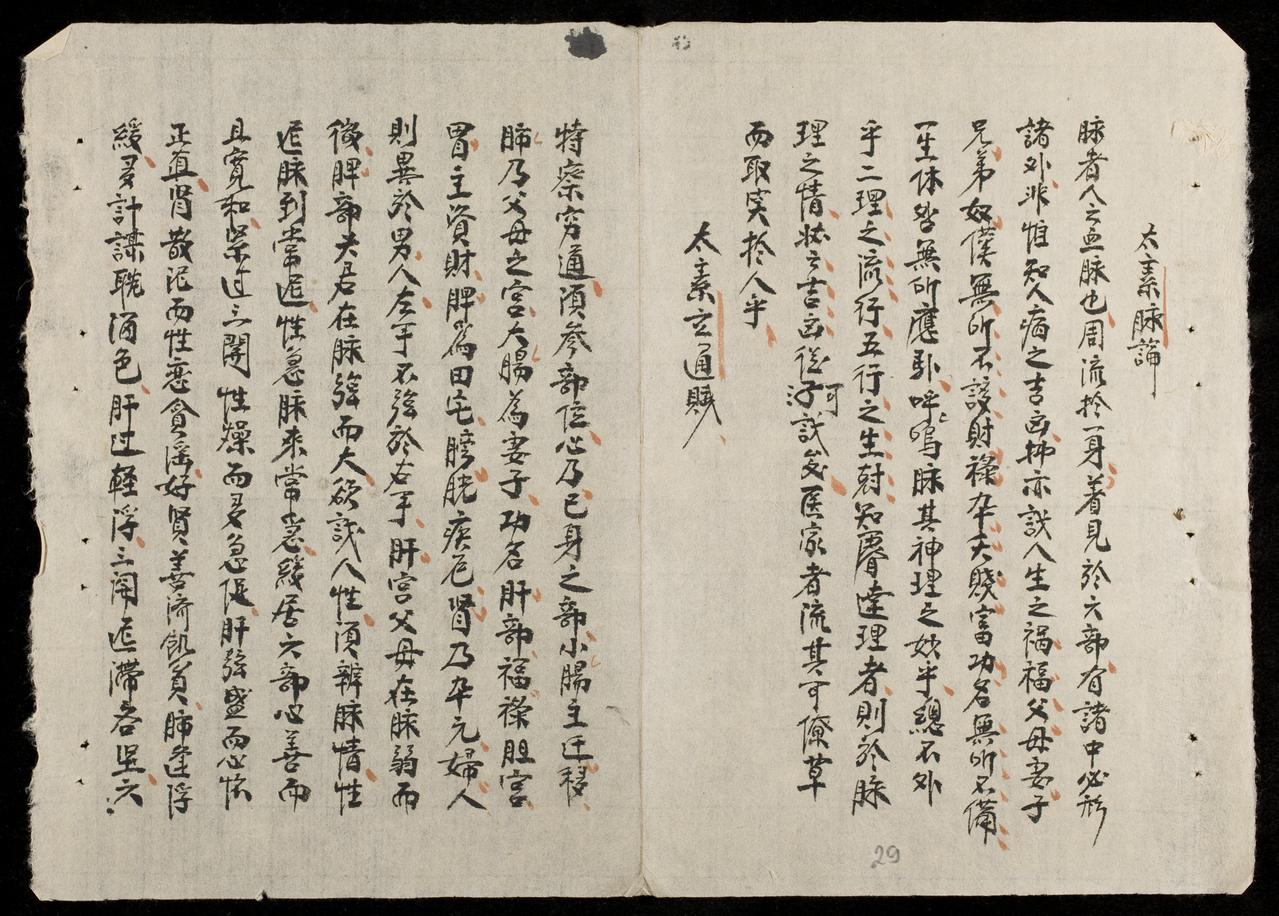 太素脉論
脉者人之血脉也周流於一身着見於六部有諸中必形
諸外非惟知人病之吉凶抑亦識人生之禍福父母妻子
兄弟奴僕無所不該財祿卒夭賤富功名無所不備
一生休咎無所應乖吁嗚脉其神理之妙乎總不外
乎二理之流行五行之生尅知曆達理者則於脉
理之情狀之吉凶從可識矣医家者流其可僚草
而取笑於人乎
太素玄通賦
特察穷通須參部位心乃己身之部小腸主迁移
肺乃父母之宮大腸為妻子功名肝部福祿胆宮
胃主資財脾為田宅膀胱疾厄腎乃卒元婦人
則異於男人左手不強於右手肝宮父母在脉弱而
微脾部夫君在脉強而大欲識人性須辨脉情性
迟脉到常迟性急脉來常急緩居六部心善而
且寛和柴过三關性燥而多急促肝強盛而心怀
正直腎散泥而性恋貪淫好賢善济飢貧肺逢浮
緩多計謀耽酒色肝过輕浮三関迟滯吝坚六
29